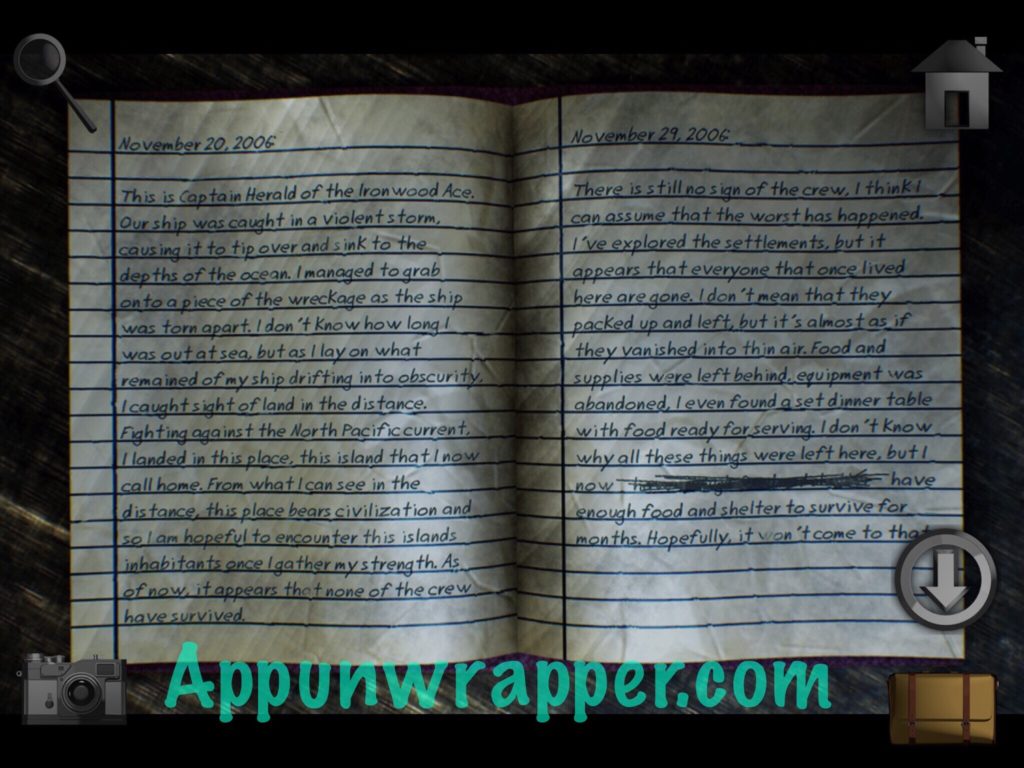 November 20, 2006
This is Captain Herald of the Ironwood Ace.
Our ship was caught in a violent storm,
causing it to tip over and sink to the
depths of the ocean. I managed to grab
onto a piece of the wreckage as the ship
was torn apart. I don't know how long I
was out at sea, but as I lay on what
remained of my ship drifting into obscurity,
I caught sight of land in the distance.
Fighting against the North Pacific current,
I landed in this place, this island that I now
call home. From what I can see in the
distance, this place bears civilization and
so I am hopeful to encounter this islands
inhabitants once I gather my strength. As
of now, it appears that none of the crew
have survived.
November 29, 2006
There is still no sign of the crew, I think I
can assume that the worst has happened.
I've explored the settlements, but it
appears that everyone that once lived
here are gone. I don't mean that they
packed up and left, but it's almost as if
they vanished into thin air. Food and
supplies were left behind, equipment was
abandoned, I even found a set dinner table
with food ready for serving. I don't know
why all these things were left here, but I
now have
enough food and shelter to survive for
months. Hopefully, it won't come to that.
Appunwrapper.com